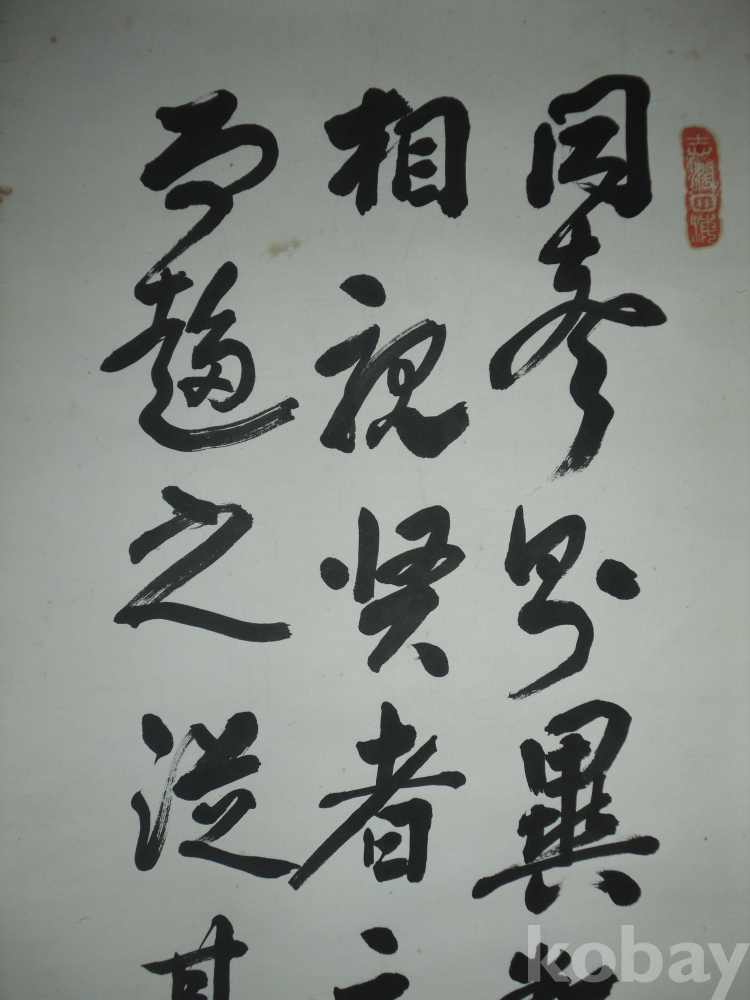 別異
相視賢者之
而趨之從其
kobay